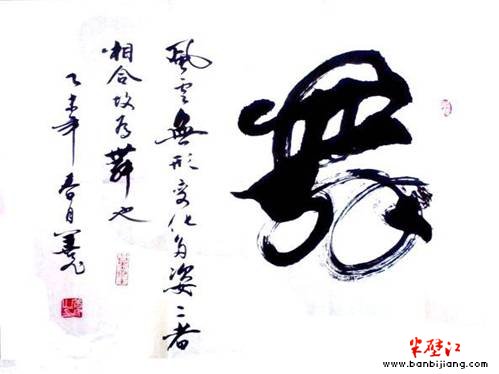 舞
風雲無形变化多姿二者
相合故为舞也
乙未年春月
半壁江
www.banbijiang.com